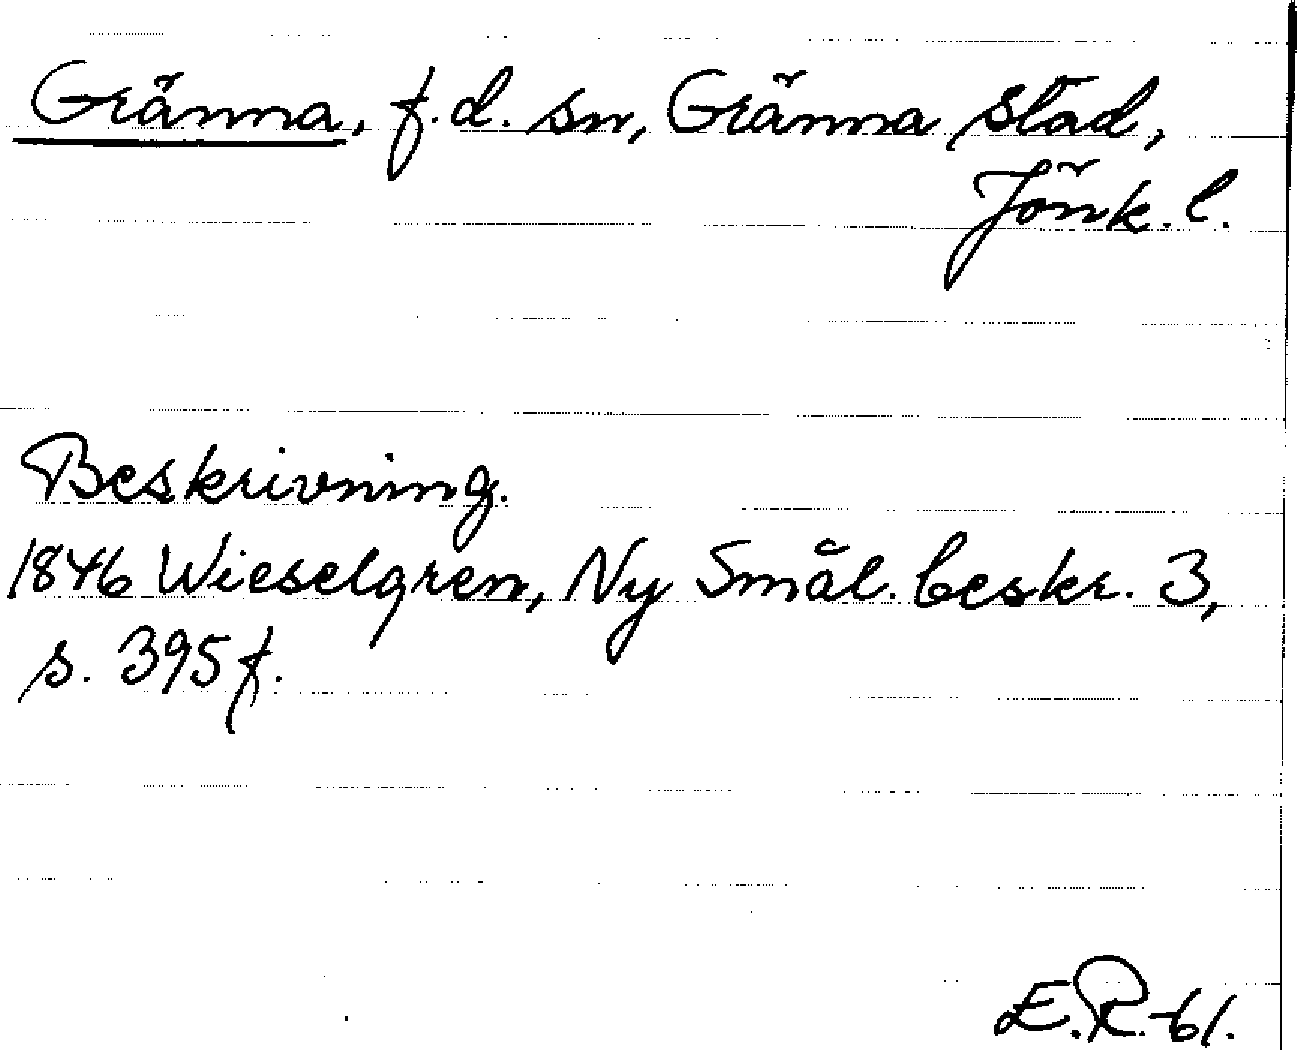 Gränna, f.d. sn, Gränna stad,
Jönk. l.
Beskrivning.
1846 Wieselgren, Ny Smål. beskr. 3,
s. 395 f.
E.R.-61.